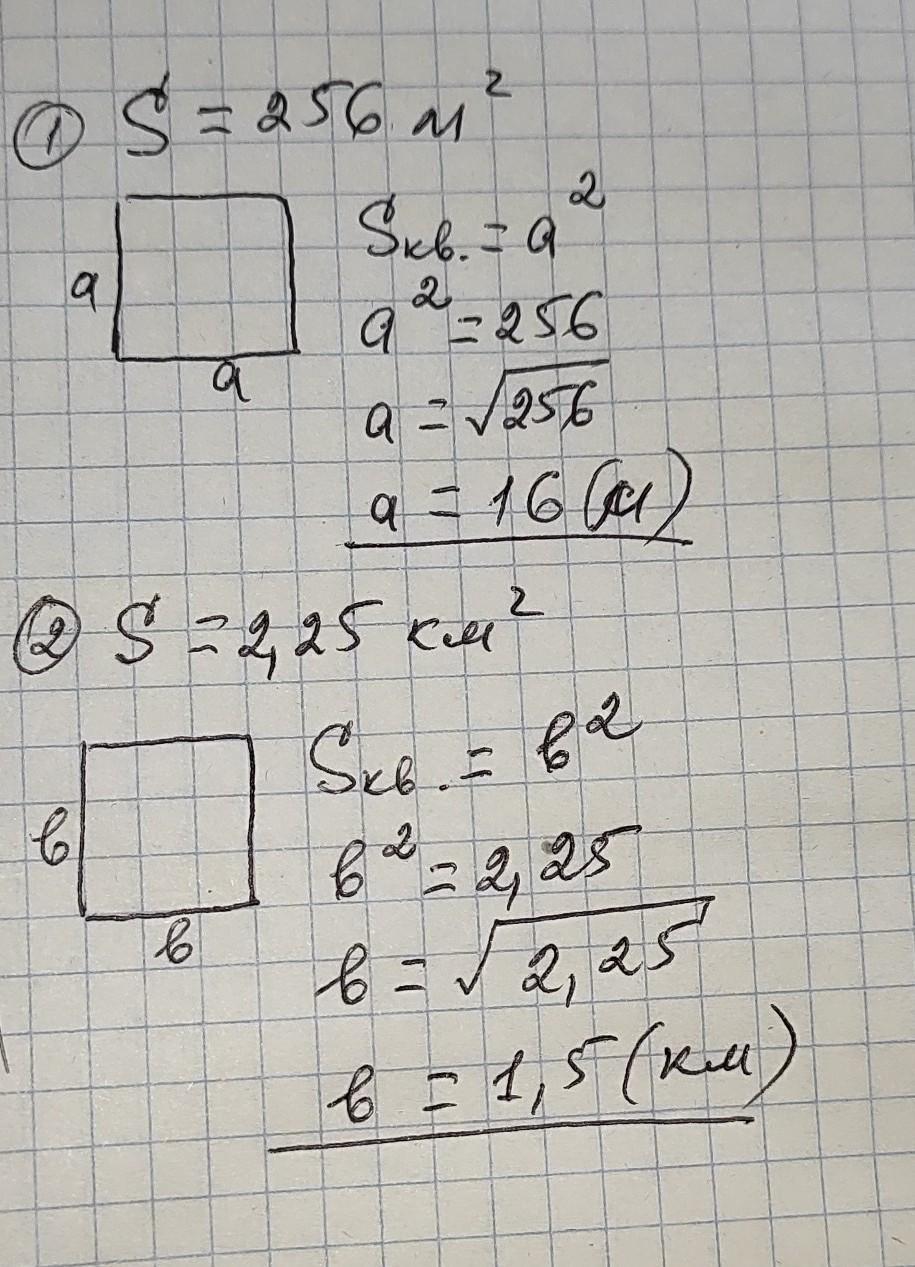 ① S = 256 м²
a
a
Sкв. = a²
a² = 256
a = √256
a = 16 (м)
② S = 2,25 км²
в
в
Sкв. = в²
в² = 2,25
в = √2,25
в = 1,5 (км)